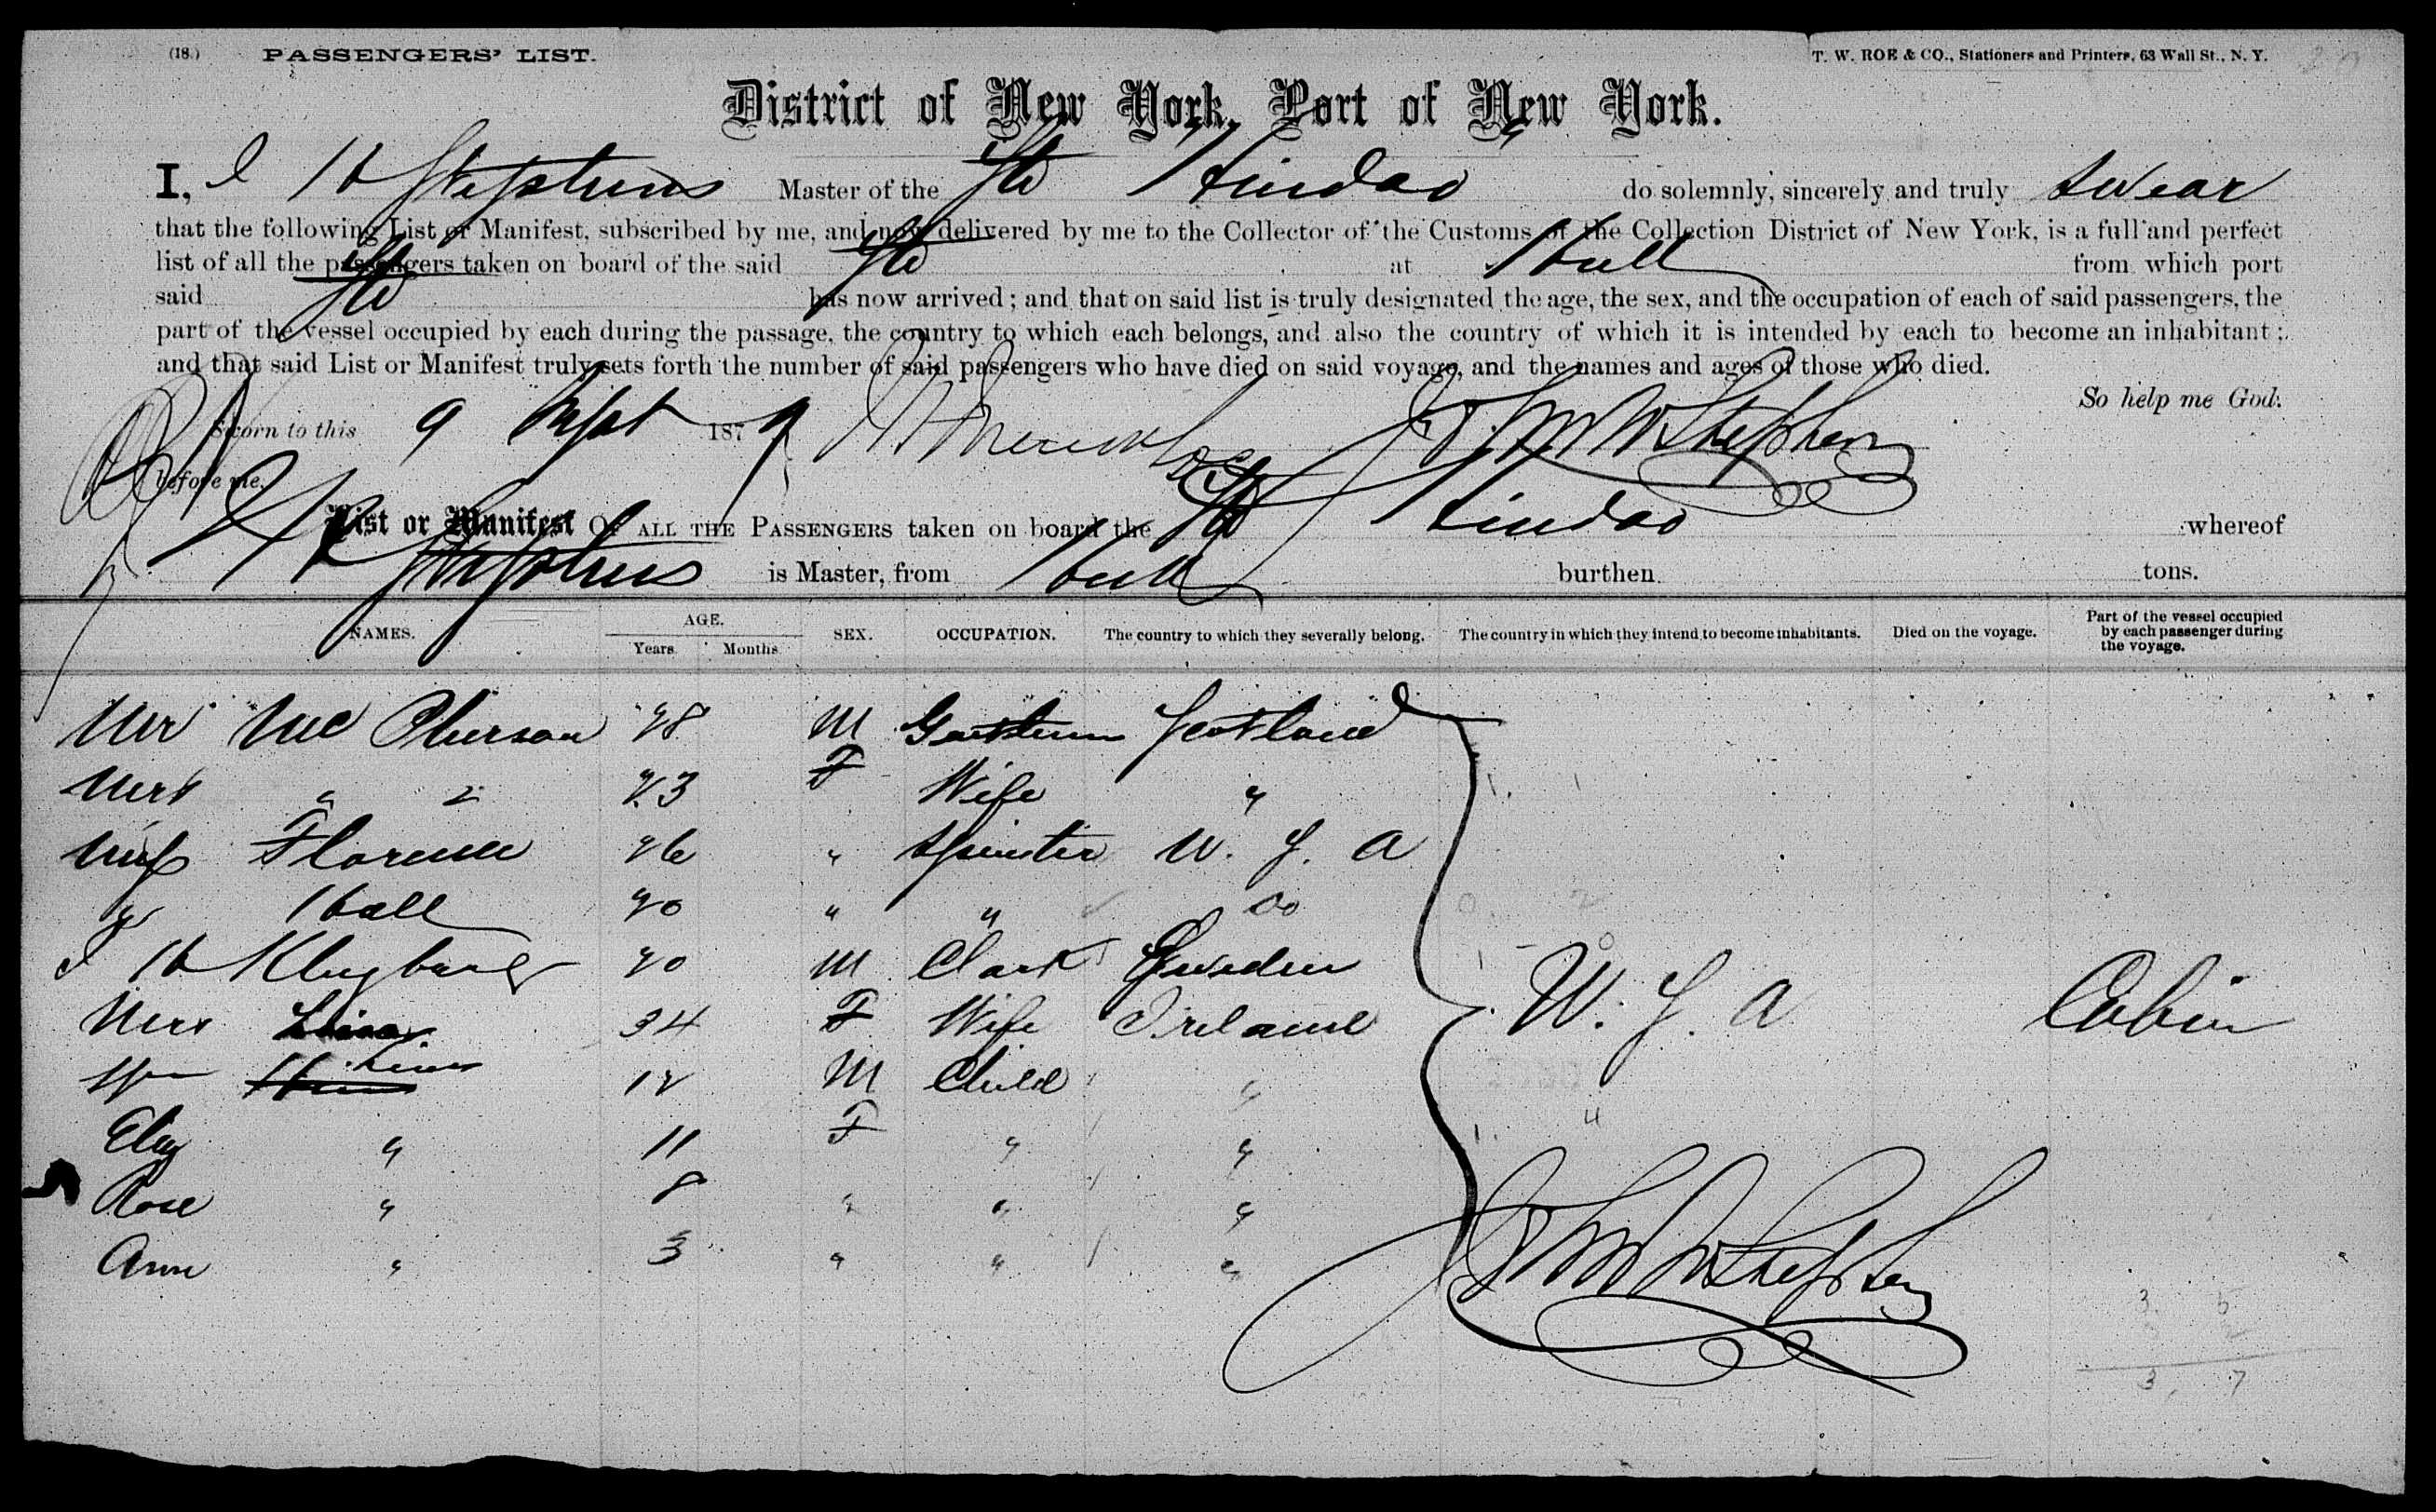 (18.) PASSENGERS' LIST. T. W. ROE & CO., Stationers and Printers, 63 Wall St., N. Y.
District of New York, Port of New York.
I, J H Stephens Master of the Str Hindoo do solemnly, sincerely and truly swear
that the following List or Manifest, subscribed by me, and now delivered by me to the Collector of the Customs of the Collection District of New York, is a full and perfect
list of all the passengers taken on board of the said Str at Hull from which port
said Str has now arrived; and that on said list is truly designated the age, the sex, and the occupation of each of said passengers, the
part of the vessel occupied by each during the passage, the country to which each belongs, and also the country of which it is intended by each to become an inhabitant;
and that said List or Manifest truly sets forth the number of said passengers who have died on said voyage, and the names and ages of those who died.
So help me God.
Sworn to this 9 Sept 1879
before me,
List or Manifest OF ALL THE PASSENGERS taken on board the Str Hindoo whereof
Stephens is Master, from Hull burthen tons.
NAMES. AGE. Years. Months. SEX. OCCUPATION. The country to which they severally belong. The country in which they intend to become inhabitants. Died on the voyage. Part of the vessel occupied by each passenger during the voyage.
Mr Mc Pherson 28 M Scotland
Mrs " " 23 F Wife "
Miss Florence 26 " Spinster U. S. A
" Hall 20 " " Do
J H 20 M Clark Sweden
Mrs 34 F Wife Ireland U. S. A Cabin
Wm 12 M Child "
Eliz " 11 F " "
Rose " 8 " " "
Ann " 3 " " "
3 5
2
3, 7